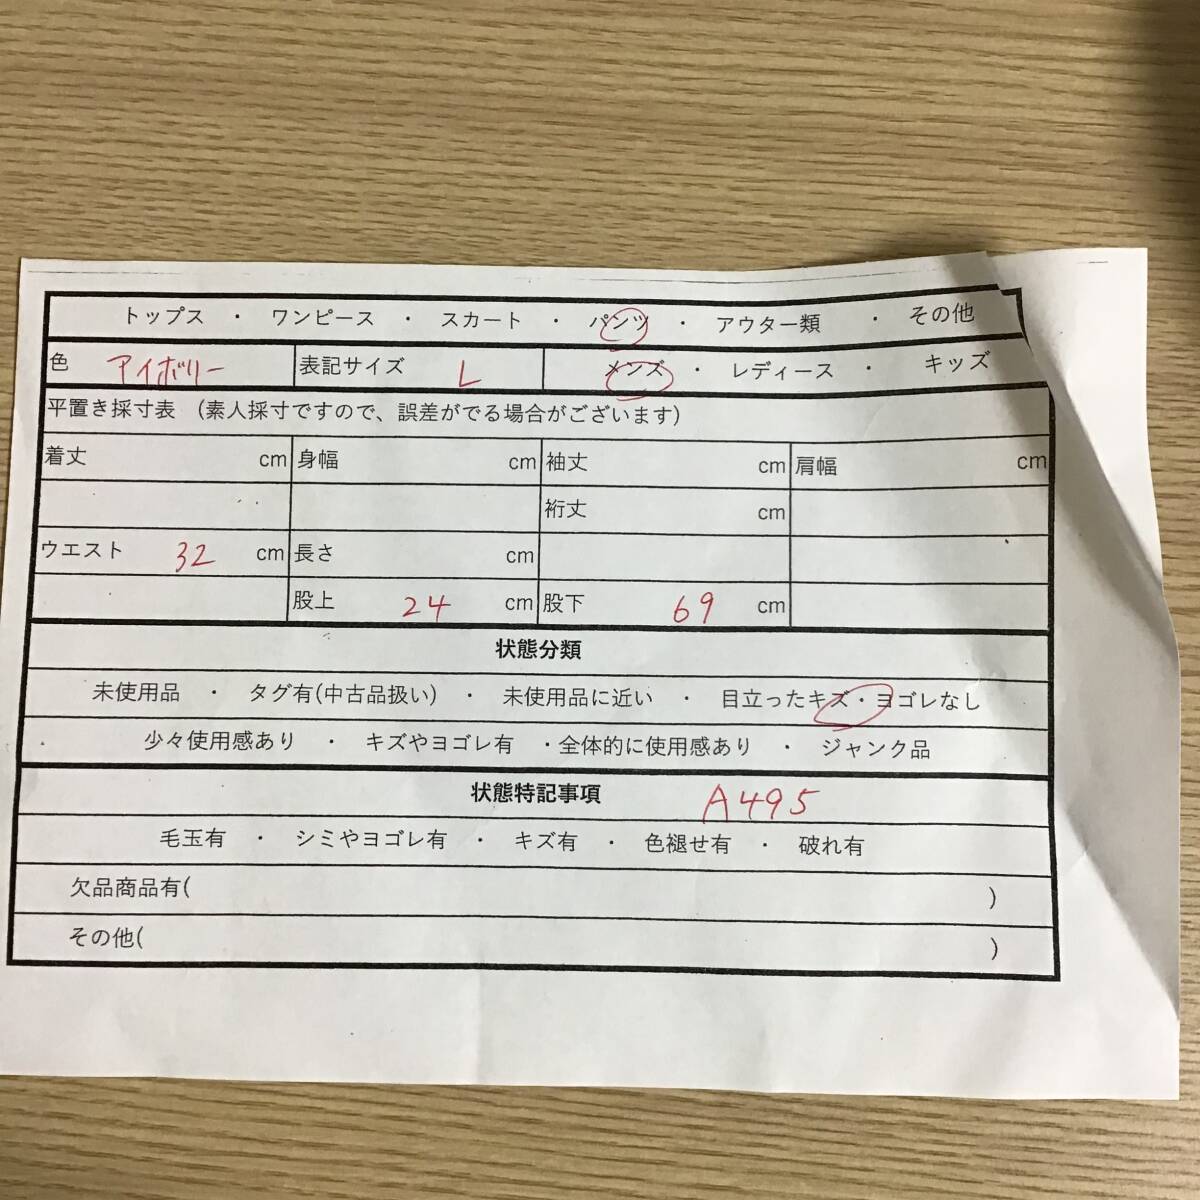 トップス ・ ワンピース ・ スカート ・ パンツ ・ アウター類 ・ その他
色 アイボリー 表記サイズ L メンズ ・ レディース ・ キッズ
平置き採寸表 (素人採寸ですので、誤差がでる場合がございます)
着丈 cm 身幅 cm 袖丈 cm 肩幅 cm
裄丈 cm
ウエスト 32 cm 長さ cm
股上 24 cm 股下 69 cm
状態分類
未使用品 ・ タグ有(中古品扱い) ・ 未使用品に近い ・ 目立ったキズ・ヨゴレなし
少々使用感あり ・ キズやヨゴレ有 ・全体的に使用感あり ・ ジャンク品
状態特記事項 A495
毛玉有 ・ シミやヨゴレ有 ・ キズ有 ・ 色褪せ有 ・ 破れ有
欠品商品有( )
その他( )